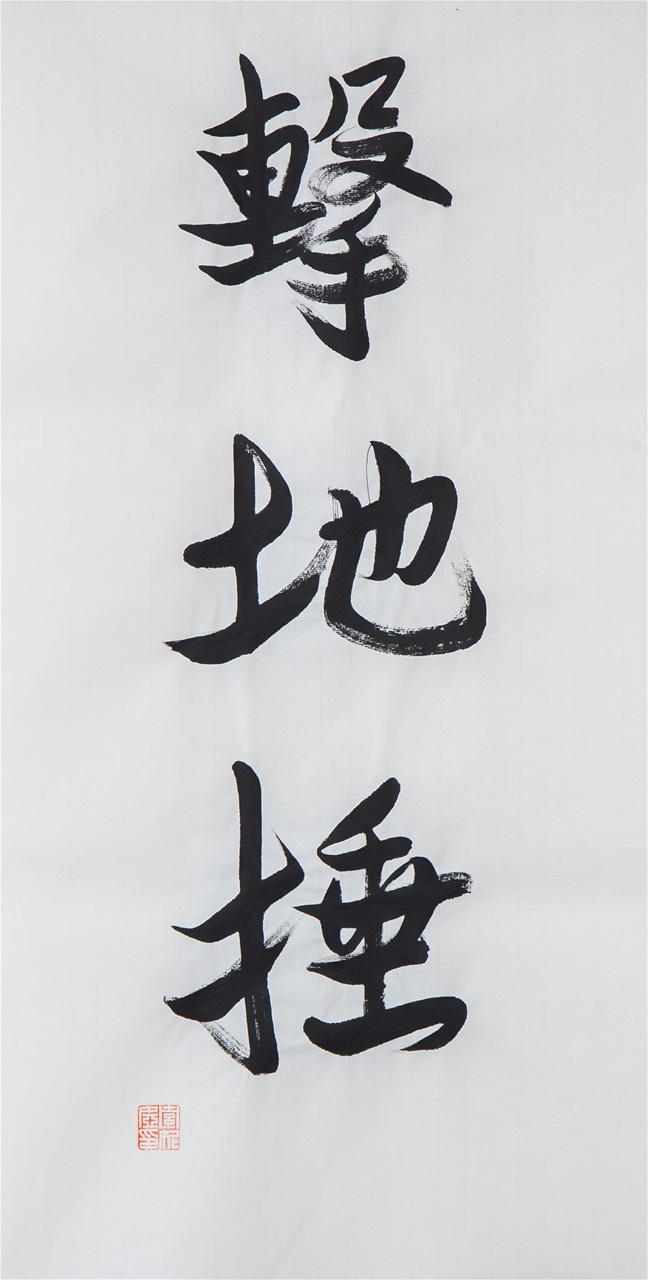 擊地捶